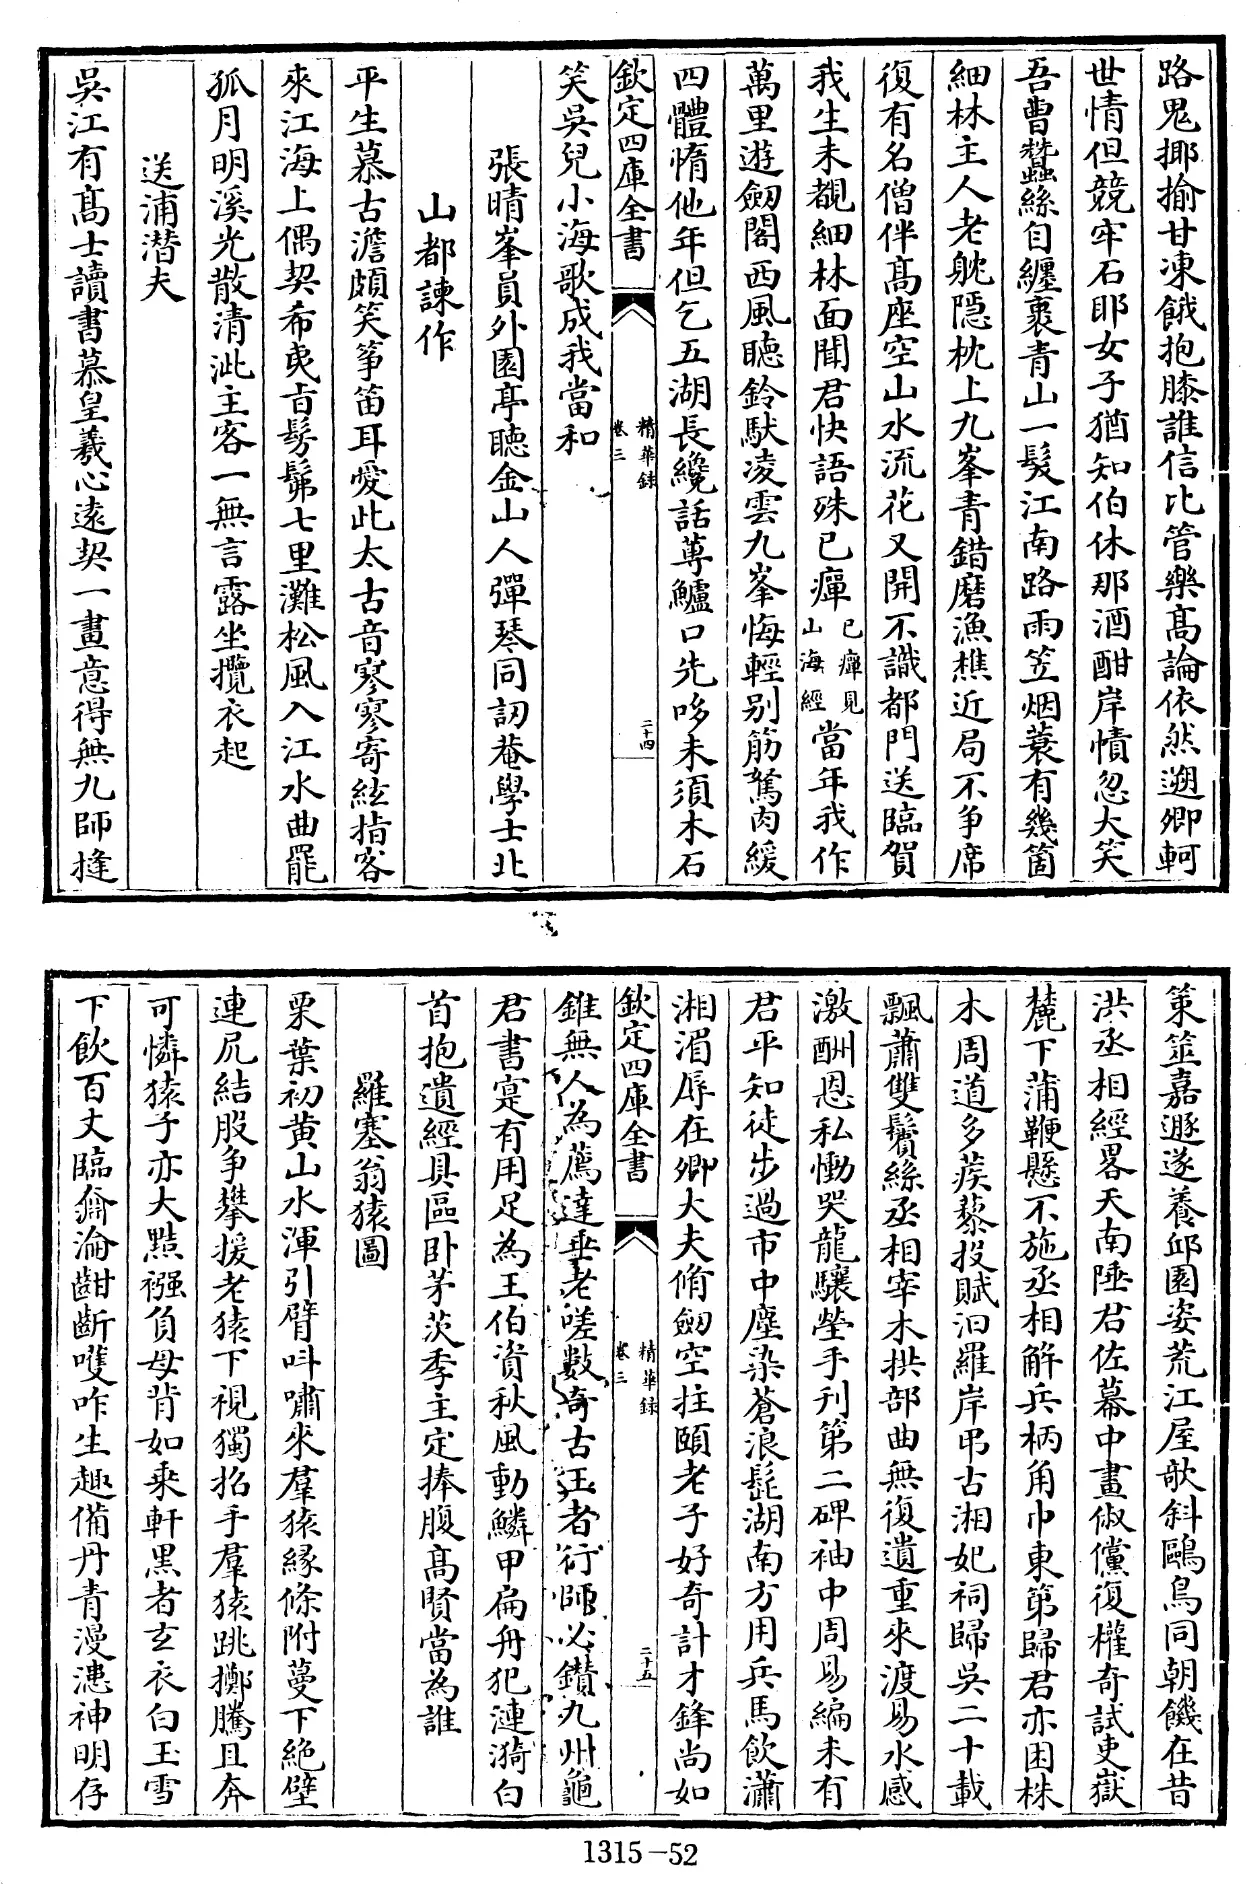 路鬼揶揄甘凍餓抱膝誰信比管樂髙論依然遡卿軻
世情但競牢石耶女子猶知伯休那酒酣岸幘忽大笑
吾曹蠶絲自纒裹青山一髮江南路雨笠烟蓑有幾箇
細林主人老躭隱枕上九峯青錯磨漁樵近局不争席
復有名僧伴髙座空山水流花又開不識都門送臨賀
我生未覩細林面聞君快語殊已癉已癉見山海經當年我作
萬里遊劒閣西風聴鈴馱凌雲九峯悔輕别筋駑肉緩
四體惰他年但乞五湖長纔話蓴鱸口先哆未須木石
欽定四庫全書
精華録
卷三
二十四
笑吳兒小海歌成我當和
張晴峯員外園亭聴金山人彈琴同訒菴學士北
山都諫作
平生慕古澹頗笑筝笛耳愛此太古音寥寥寄絃指客
來江海上偶契希夷旨髣髴七里灘松風入江水曲罷
孤月明溪光散清泚主客一無言露坐攬衣起
送浦潜夫
吳江有髙士讀書慕皇羲心逺契一畫意得無九師揲
䇿筮嘉遯遂養邱園姿荒江屋欹斜鷗鳥同朝饑在昔
洪丞相經畧天南陲君佐幕中畫俶儻復權奇試吏嶽
麓下蒲鞭懸不施丞相解兵柄角巾東第歸君亦困株
木周道多蒺藜投賦汨羅岸弔古湘妃祠歸吳二十載
飄蕭雙鬢絲丞相宰木拱部曲無復遺重來渡易水感
激酬恩私慟哭龍驤塋手刋第二碑袖中周易編未有
君平知徒步過市中塵染蒼浪髭湖南方用兵馬飲瀟
湘湄辱在卿大夫脩劒空拄頤老子好奇計才鋒尚如
欽定四庫全書
精華録
卷三
二十五
錐無人為薦達垂老嗟數奇古王者行師必鑚九州龜
君書寔有用足為王伯資秋風動鱗甲扁舟犯漣漪白
首抱遺經具區卧茅茨季主定捧腹髙賢當為誰
羅塞翁猿圖
栗葉初黄山水渾引臂呌嘯來羣猿縁條附蔓下絶壁
連尻結股争攀援老猿下視獨招手羣猿跳擲騰且奔
可憐猿子亦大黠襁負母背如乘軒黒者玄衣白玉雪
下飲百丈臨奫淪齟齗嚄咋生趣備丹青漫漶神明存
1315-52